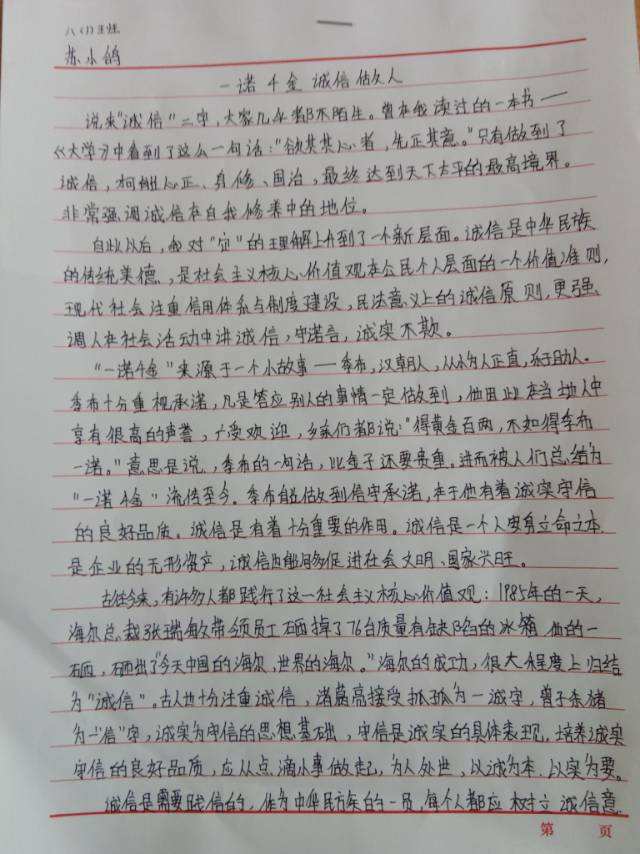 八(1)班
苏小鸽
一诺千金 诚信做人
说来"诚信"二字,大家几乎都不陌生。曾在我读过的一本书——
《大学》中看到了这么一句话:"欲其心者,先正其意。"只有做到了
诚信,才能心正、身修、国治,最终达到天下太平的最高境界。
非常强调诚信在自我修养中的地位。
自此以后,我对"信"的理解上升到了一个新层面。诚信是中华民族
的传统美德,是社会主义核心价值观在公民个人层面的一个价值准则,
现代社会注重信用体系与制度建设,民法意义上的诚信原则,更强
调人在社会活动中讲诚信,守诺言,诚实不欺。
"一诺千金"来源于一个小故事——季布,汉朝人,从小为人正直,乐于助人。
季布十分重视承诺,凡是答应别人的事情一定做到,他因此在当地人中
享有很高的声誉,广受欢迎,乡亲们都说:"得黄金百两,不如得季布
一诺。"意思是说,季布的一句话,比金子还要贵重。进而被人们总结为
"一诺千金"流传至今。季布能做到信守承诺,在于他有着诚实守信
的良好品质。诚信是有着十分重要的作用。诚信是一个人安身立命之本
是企业的无形资产,诚信也能够促进社会文明、国家兴旺。
古往今来,有许多人都践行了这一社会主义核心价值观:1985年的一天,
海尔总裁张瑞敏带领员工砸掉了76台质量有缺陷的冰箱,他的一
砸,砸出了"今天中国的海尔,世界的海尔。"海尔的成功,很大程度上归结
为"诚信"。古人也十分注重诚信,诸葛亮接受孤为一诚字,曾子杀猪
为一"信"字,诚实为守信的思想基础,守信是诚实的具体表现,培养诚实
守信的良好品质,应从点滴小事做起,为人处世,以诚为本,以实为要。
诚信是需要践信的,作为中华民族的一员,每个人都应树立诚信意
第 页